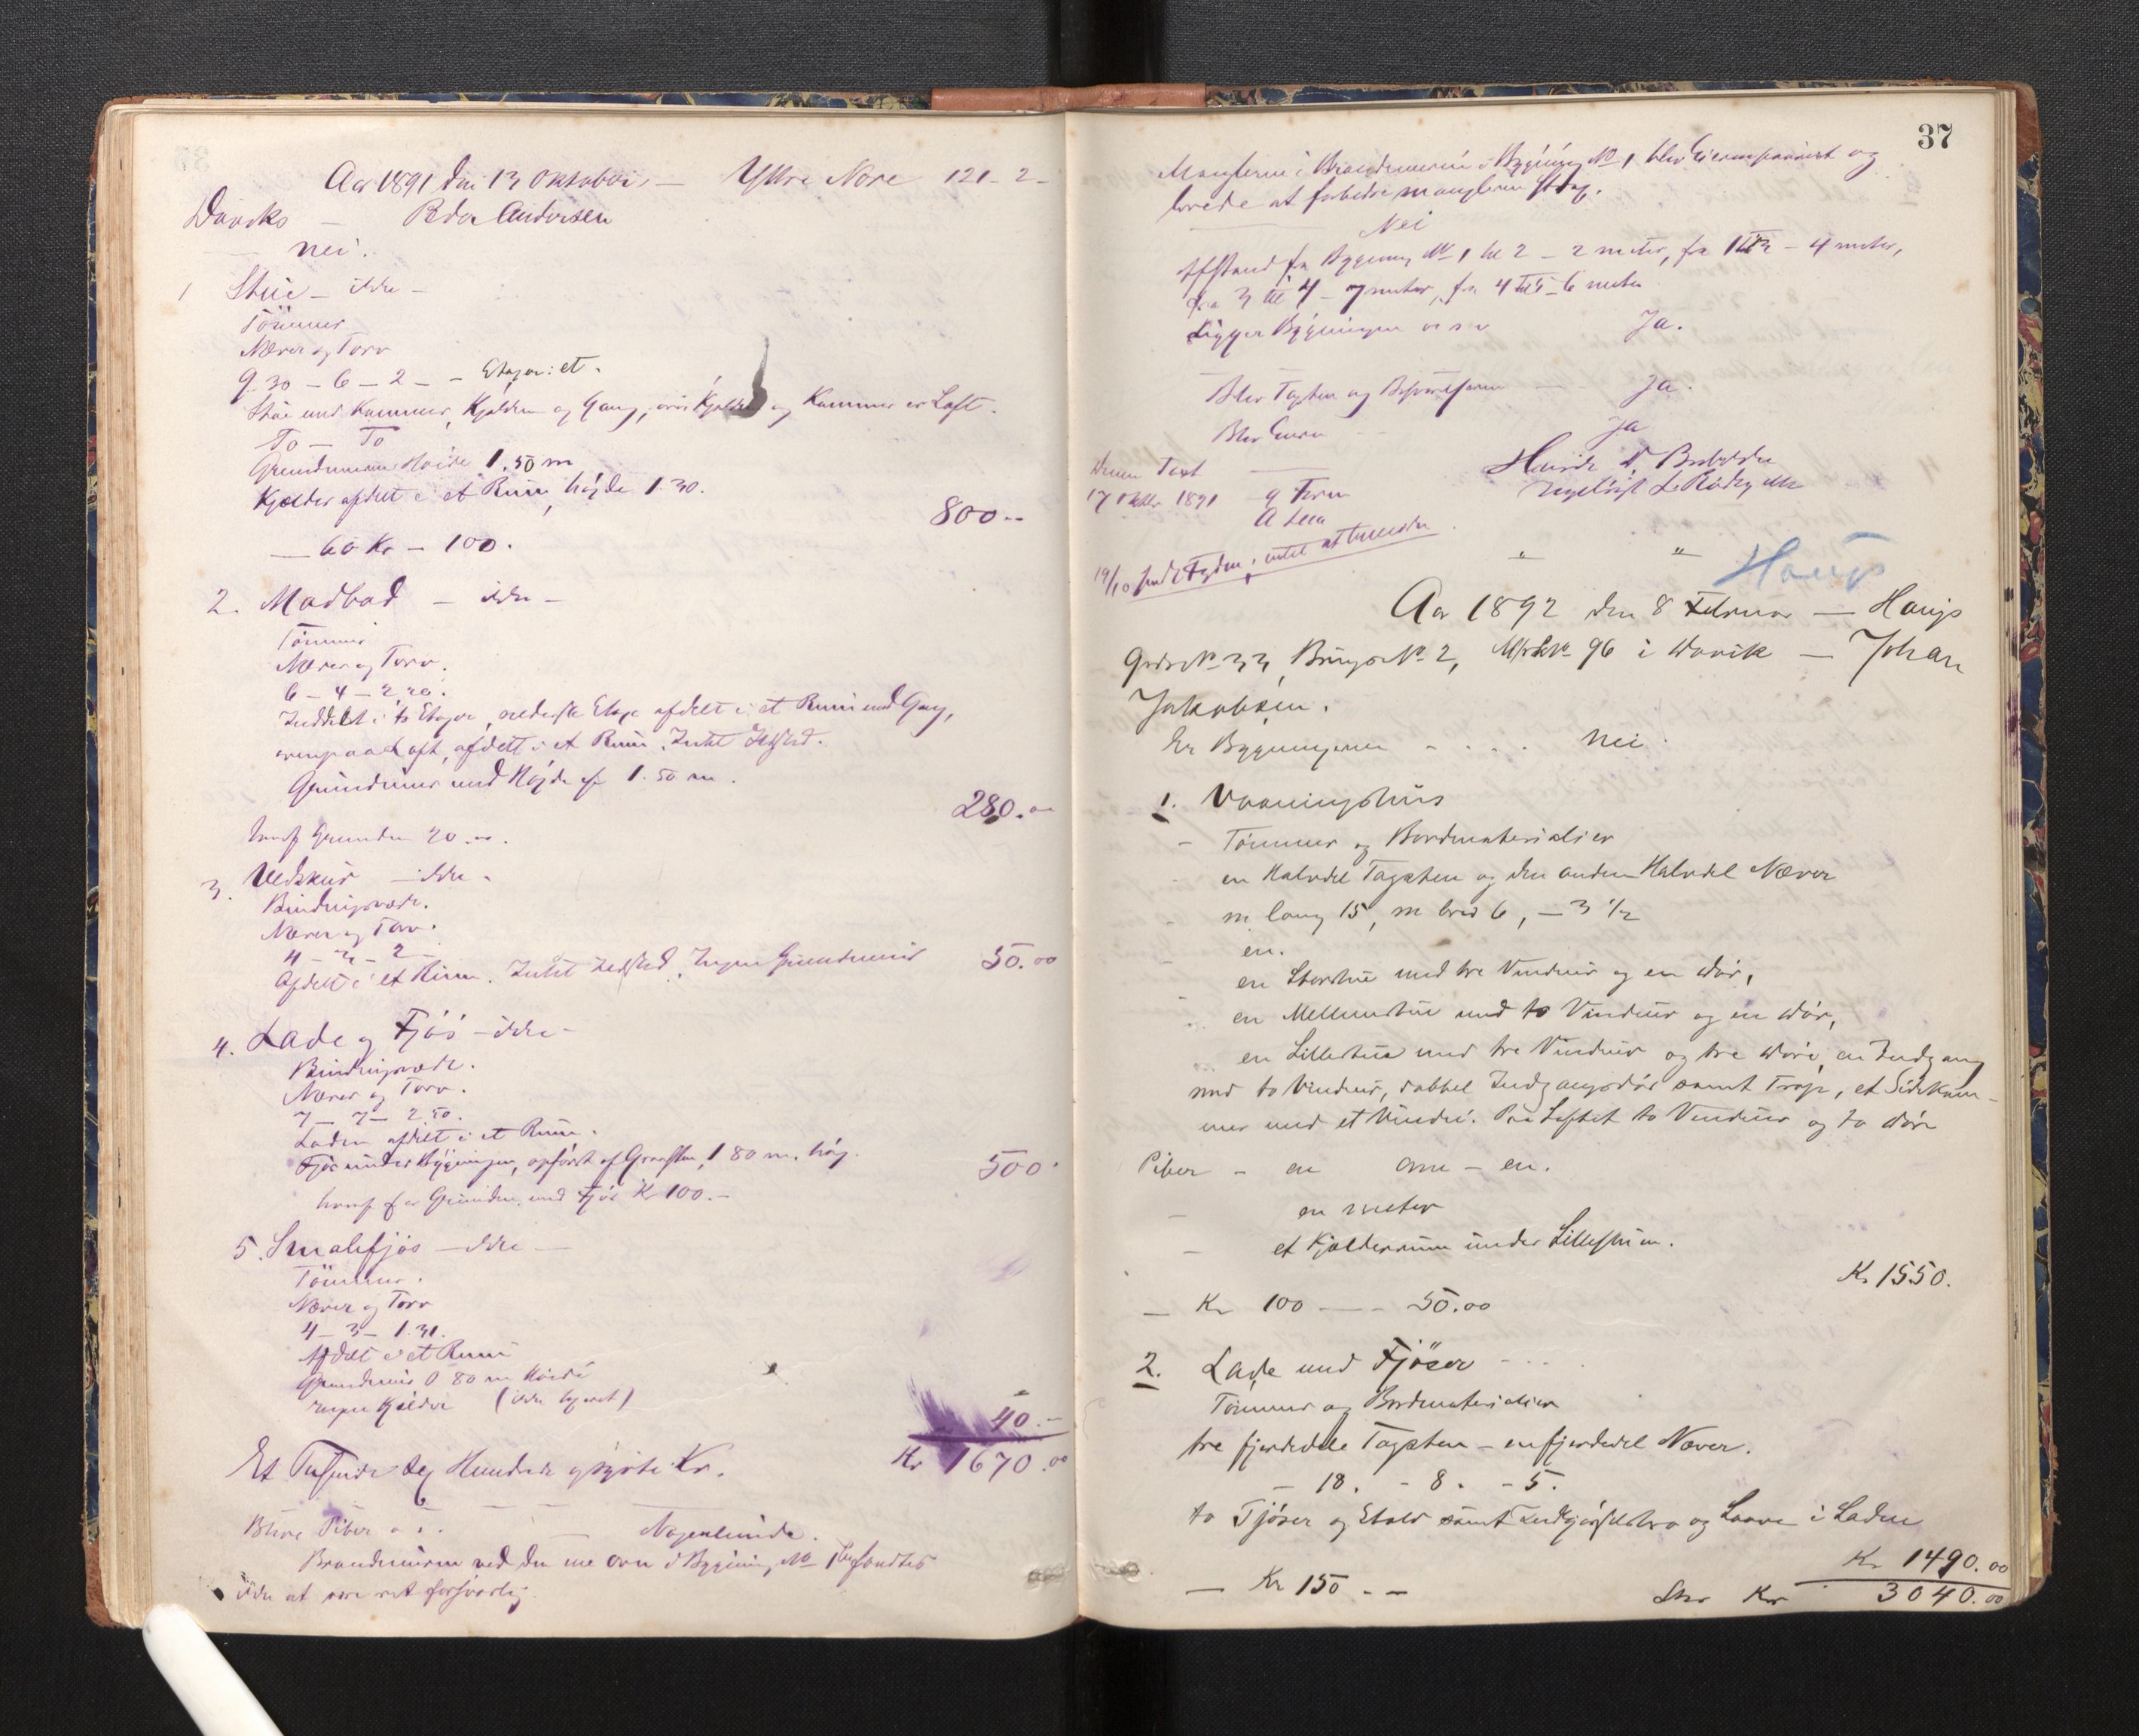 Aar 1891 den 13 Oktober, — Yttre Nore 121-2-
Daviks — Peder Andersen
— nei.
1 Stue — ikke —
Tömmer
Næver og Torv
9.30 — 6 — 2 — — Etager: et.
Stue med Kammer, Kjölken og Gang, over Kjölken og Kammer er Loft.
To — To
Grundmuren Höide 1.50 m
Kjælder afdelt i et Rum, höjde 1.30.
800..
— 60 Kr — 100.
2. Madbod — ikke —
Tömmer
Næver og Torv.
6 — 4 — 2,20.
Inddelt i to Etager, nederste Etage afdelt i et Rum med Gang,
ovenpaa Loft, afdelt i et Rum. Intet Ildsted.
Grundmur med Höjde af 1.50 m.
280.00
heraf Grunden 20.00.
3. Vedskur — ikke.
Bindingsværk.
Næver og Torv.
4 — 3 — 2 —
Afdelt i et Rum. Intet Ildsted. Ingen Grundmur 50.00
4. Lade og Fjös — ikke —
Bindingsværk.
Næver og Torv.
7 — 7 — 2.50.
Laden afdelt i et Rum.
Fjös under Bygningen, opfört af Graasten, 1.80 m. höj.
500.
heraf for Grunden med Fjös Kr 100.—
5. Smalefjös — ikke —
Tömmer.
Næver og Torv
4 — 3 — 1.31.
Afdelt i et Rum
Grundmur 0.80 m Höide
ingen Kjælder (ikke)
40.—
Et Tusinde sex Hundrede og sytti Kr. Kr 1670.00
Blive Piber — — Nogenlunde.
Brandmuren ved den ene Ovn i Bygning No 1 befandtes
ikke at være ret forsvarlig.
37
Manglerne i Brandmuren i Bygning No 1 blev Eieren paavist og
lovede at forbedre manglerne strax.
Nei
Afstand fra Bygning No 1 til 2 — 2 meter, fra 1 til 3 — 4 meter,
fra 3 til 4 — 7 meter, fra 4 til 5 — 6 meter
Ligger Bygningen o s v Ja.
Blev Taxten og Beskrivelsen — Ja.
Blev Eieren — Ja
17 Oktbr 1891
19/10
" "
Haugs
Aar 1892 den 8 Februar — Haugs
Gards No 33, Brugs No 2, Mtrk No 96 i Davik — Johan
Jakobsen.
Er Bygningerne - . . . . Nei.
1. Vaaningshus
- Tömmer og Bordmaterialier
- en Halvdel Tagsten og den anden Halvdel Næver
- m lang 15, m bred 6, — 3 1/2
- en.
- en Storstue med tre Vinduer og en Dör,
en Mellemstue med to Vinduer og en Dör,
en Lillestue med tre Vinduer og tre Döre, en Indgang
med to Vinduer, dobbel Indgangsdör samt Trap, et Sidekam-
mer med et Vindu. Paa Loftet to Vinduer og to Döre
Piber - en Ovne — en.
— en meter
— et Kjælderrum under Lillestuen.
Kr 1550.
— Kr 100 — - 50.00
2. Lade med Fjöser - . . .
Tömmer og Bordmaterialier
tre fjerdedele Tagsten — en fjerdedel Næver.
— 18. - 8. - 5.
to Fjöser og Stald samt Indkjörselsbro og Laave i Laden
Kr 1490.00
— Kr 150 - - Kr 3040.00